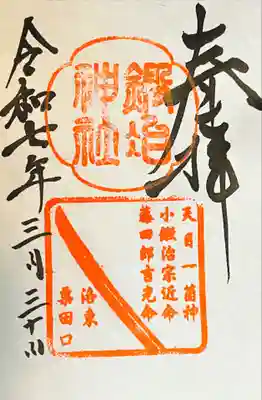 奉拝
鍛冶
神社
天目一箇神
小鍛治宗近命
藤四郎吉光命
洛東
粟田口
令和七年三月三十日